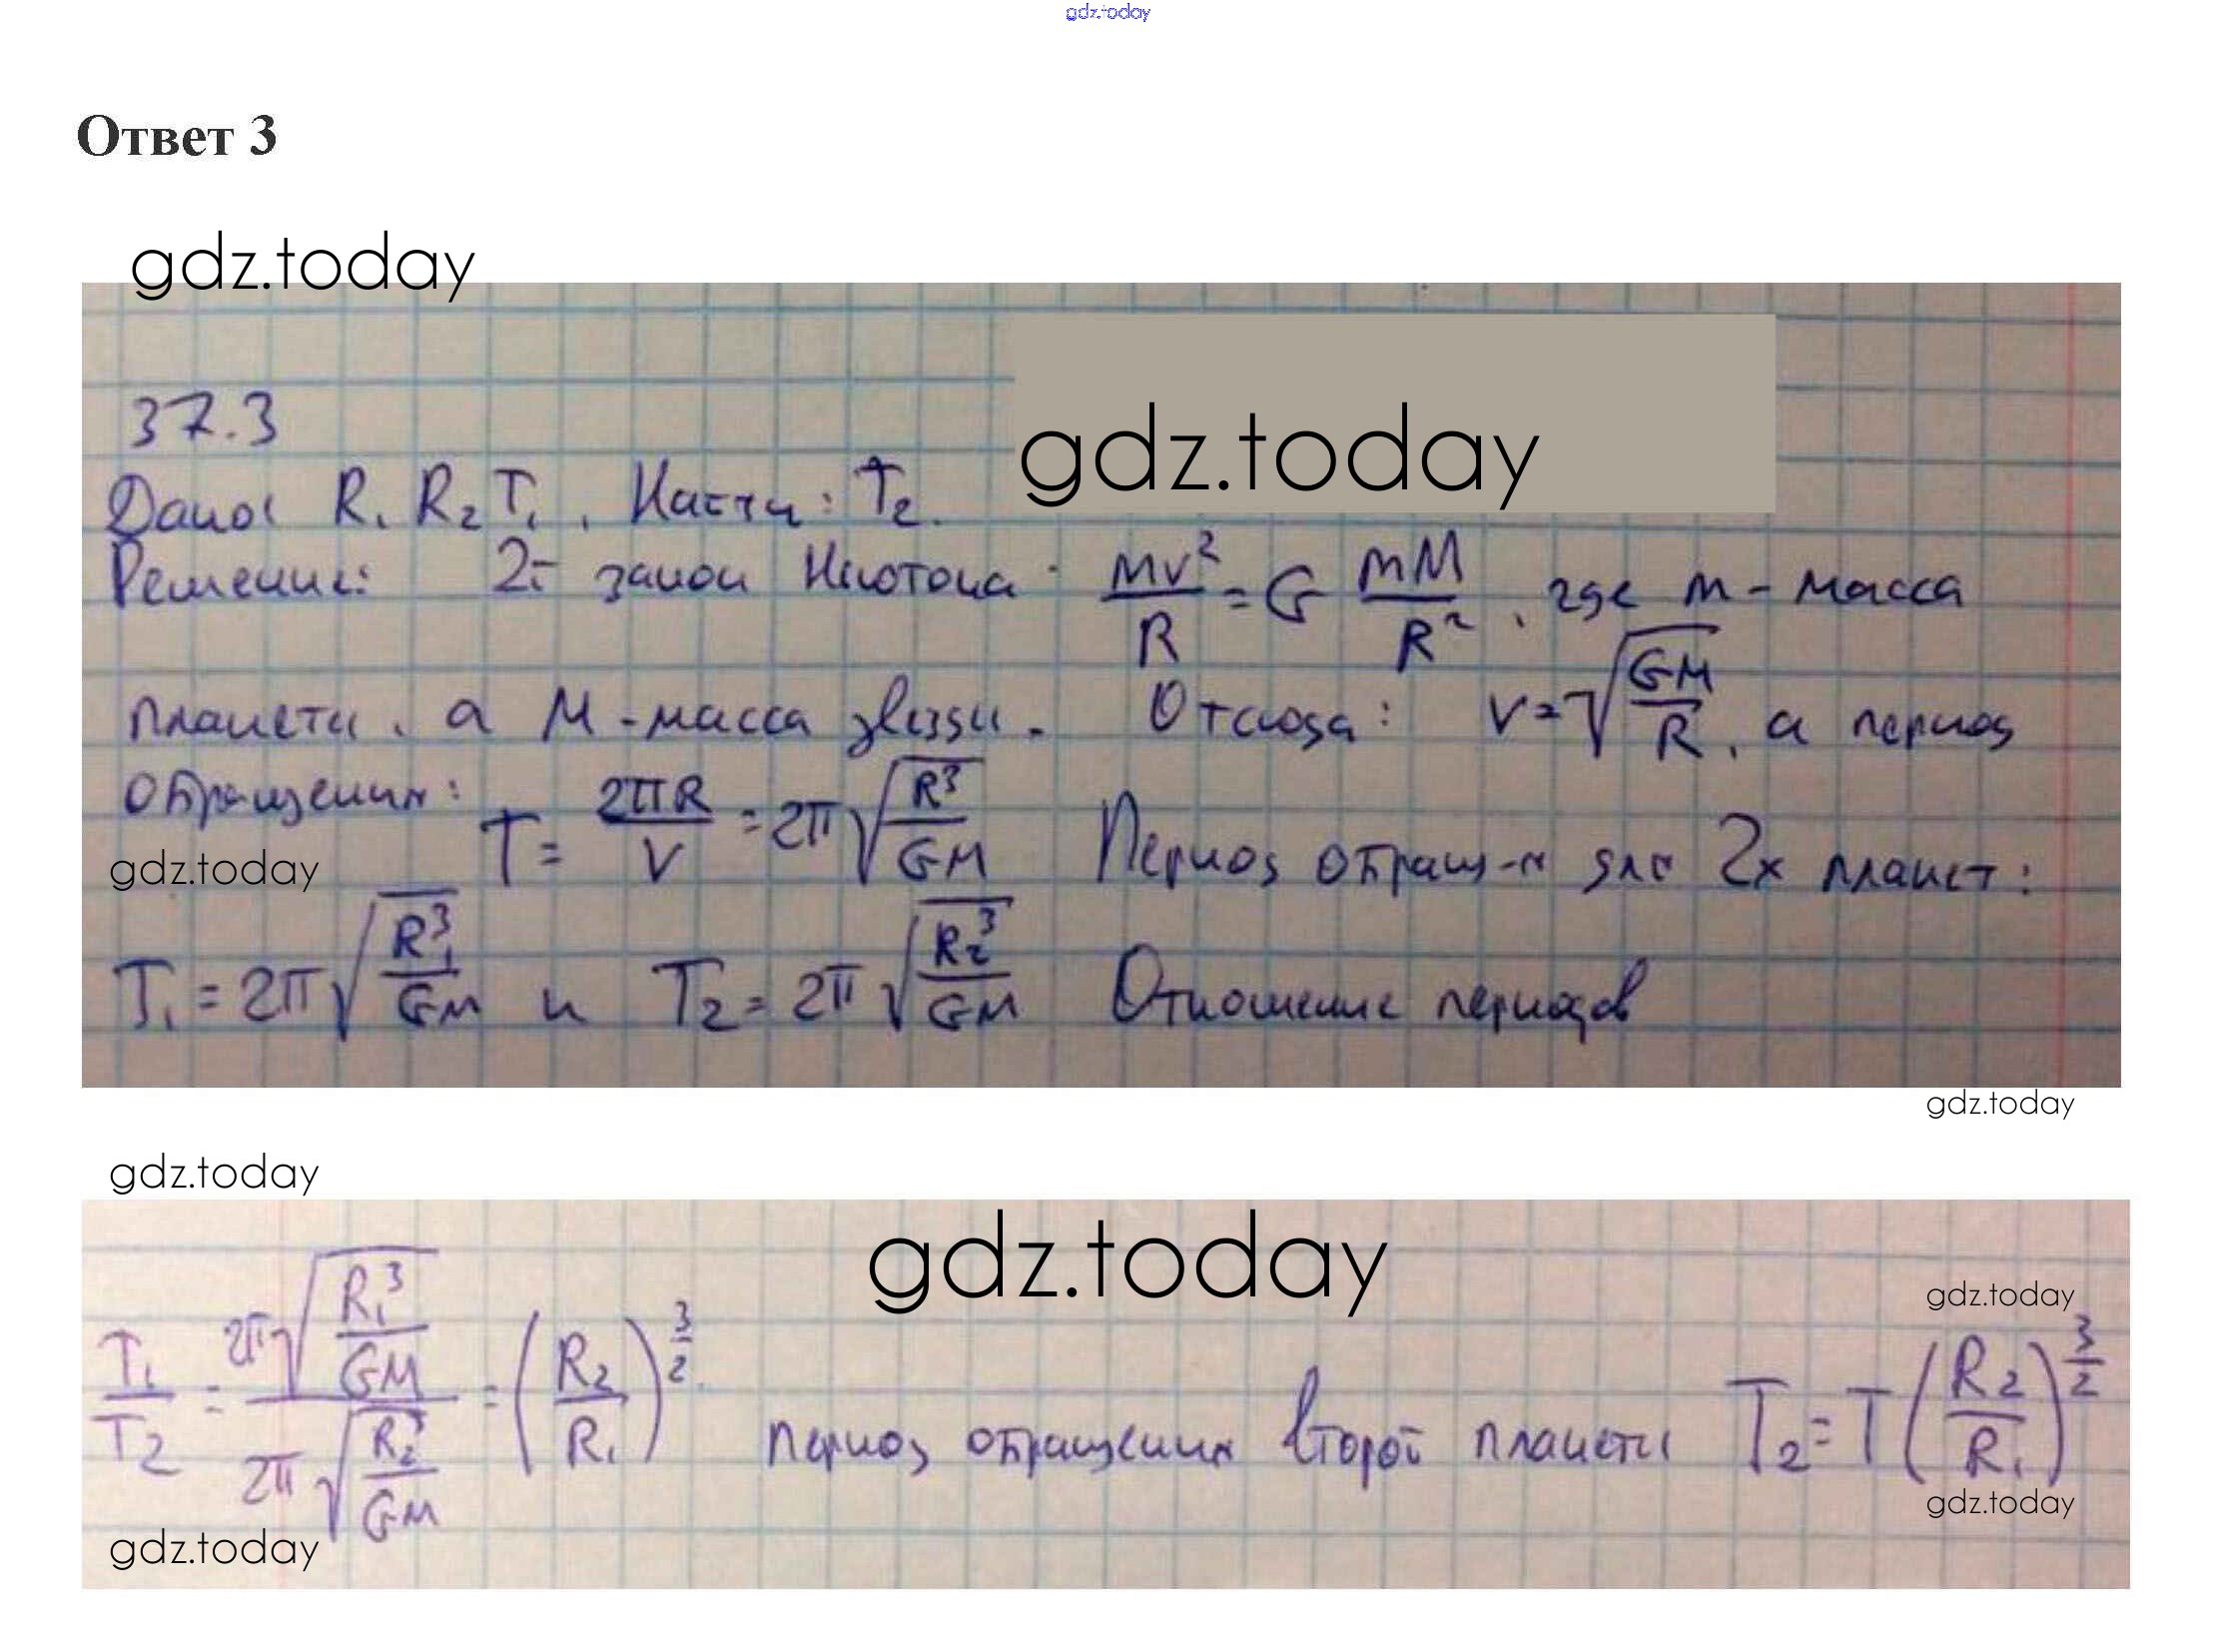 gdz.today
Ответ 3
gdz.today
37.3
gdz.today
Дано: R₁ R₂ T₁. Найти: T₂.
Решение: 2й закон Ньютона: mv²/R = G mM/R², где m - масса
планеты, а M - масса звезды. Отсюда: v = √(GM/R), а период
обращения: T = 2πR/v = 2π√(R³/GM) Период обращ-я для 2х планет:
gdz.today
T₁ = 2π√(R₁³/GM) и T₂ = 2π√(R₂³/GM) Отношение периодов
gdz.today
gdz.today
gdz.today
gdz.today
T₁/T₂ = 2π√(R₁³/GM) / 2π√(R₂³/GM) = (R₂/R₁)^(3/2). период обращения второй планеты T₂ = T(R₂/R₁)^(3/2)
gdz.today
gdz.today